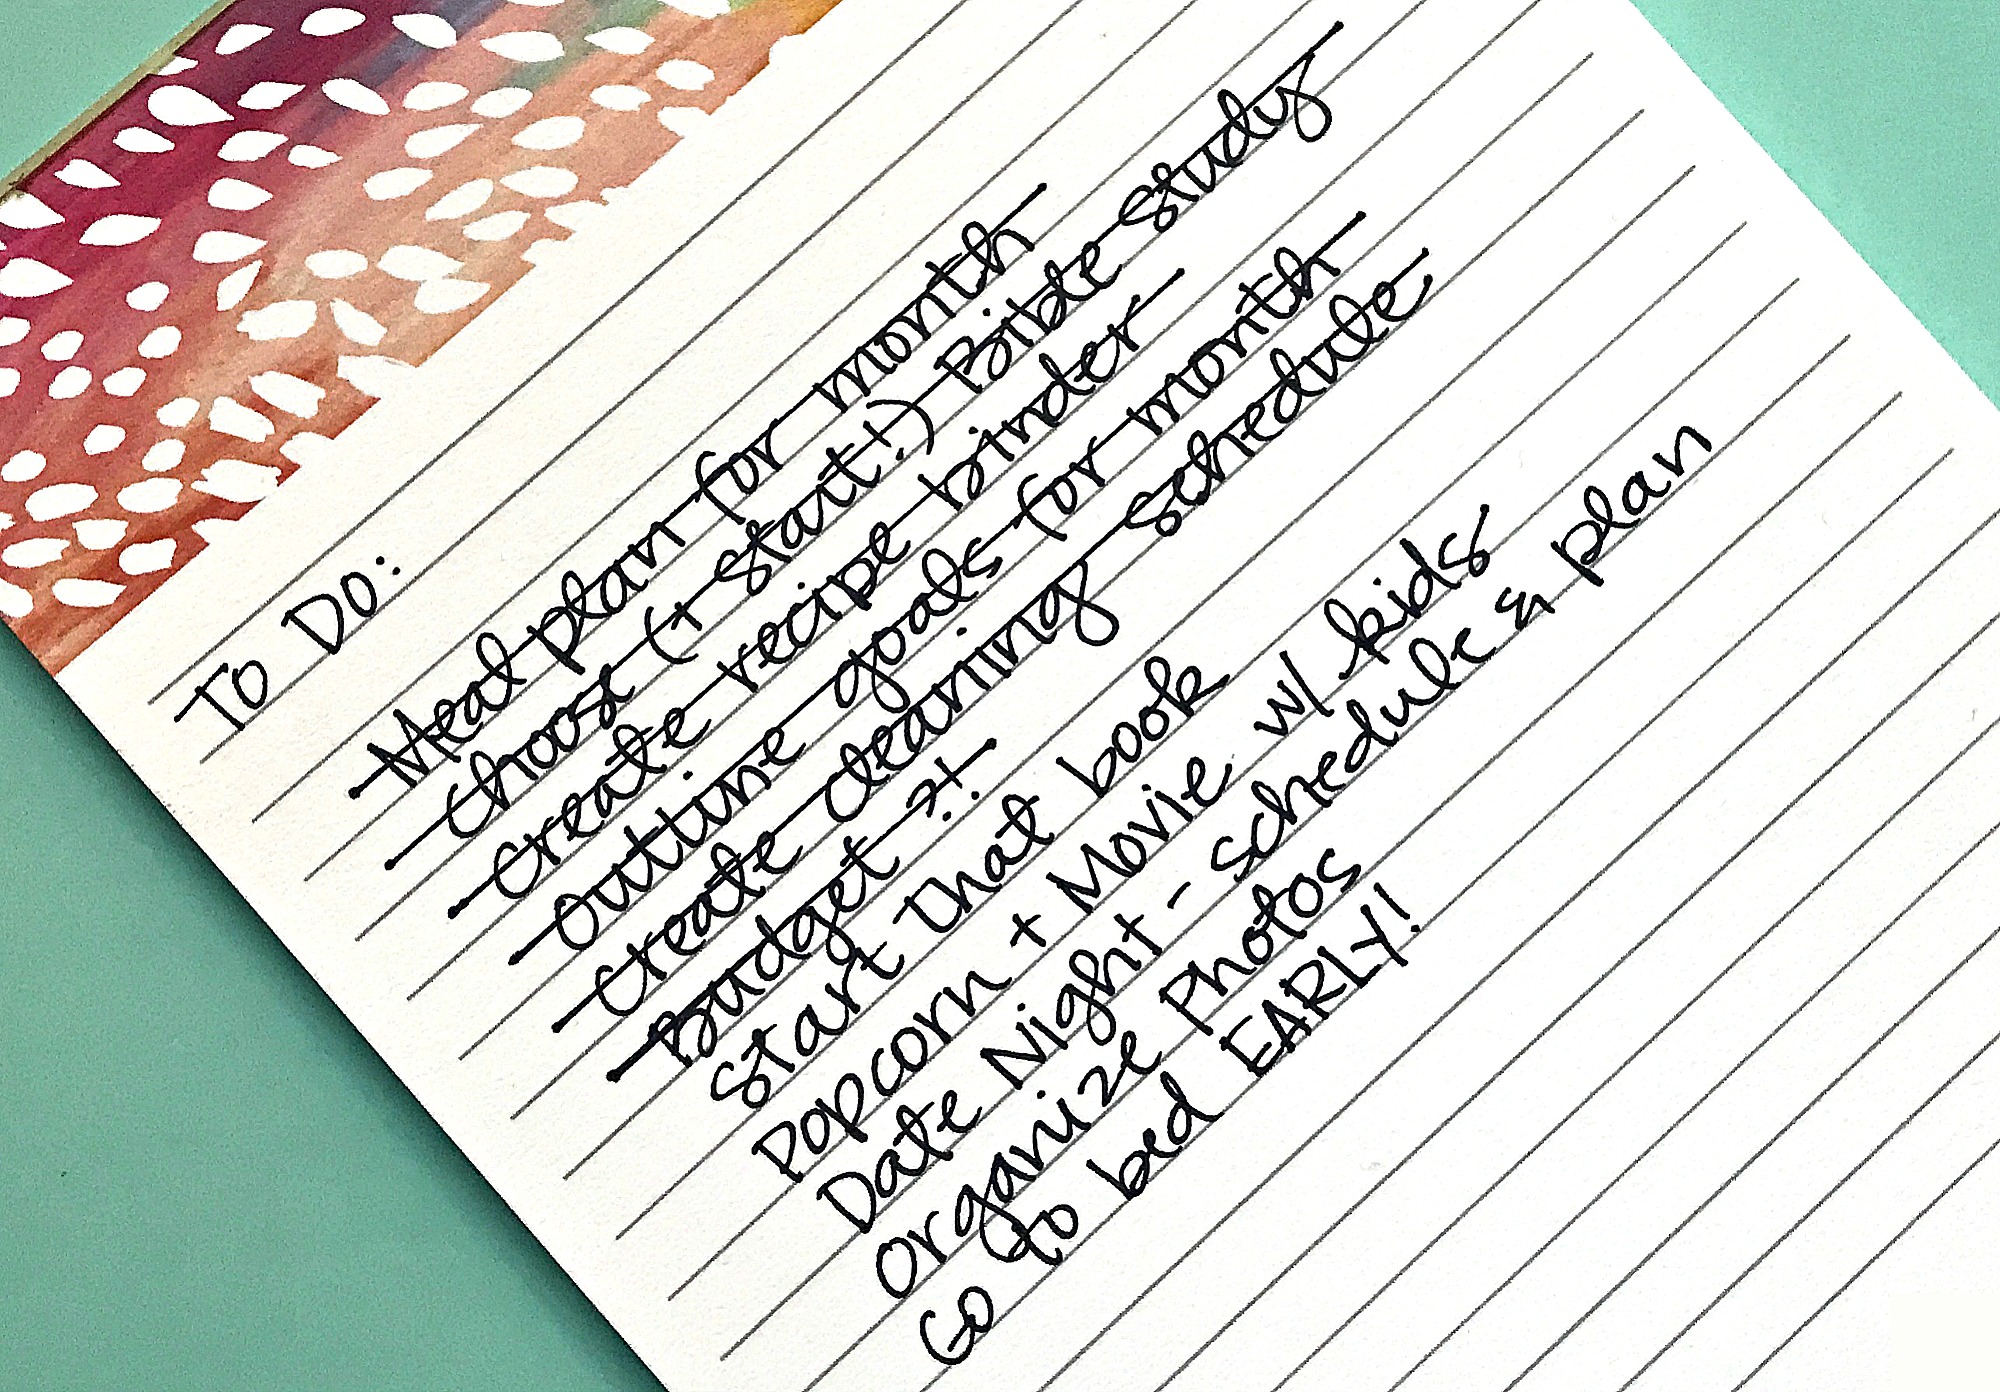 To Do:
Meal plan for month
Choose (+ start!) Bible study
Create recipe binder
Outline goals for month
Create cleaning schedule
Budget ?!
Start that book
Popcorn + Movie w/ kids
Date Night - schedule & plan
Organize Photos
Go to bed EARLY!